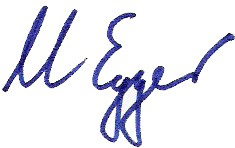 M Egger